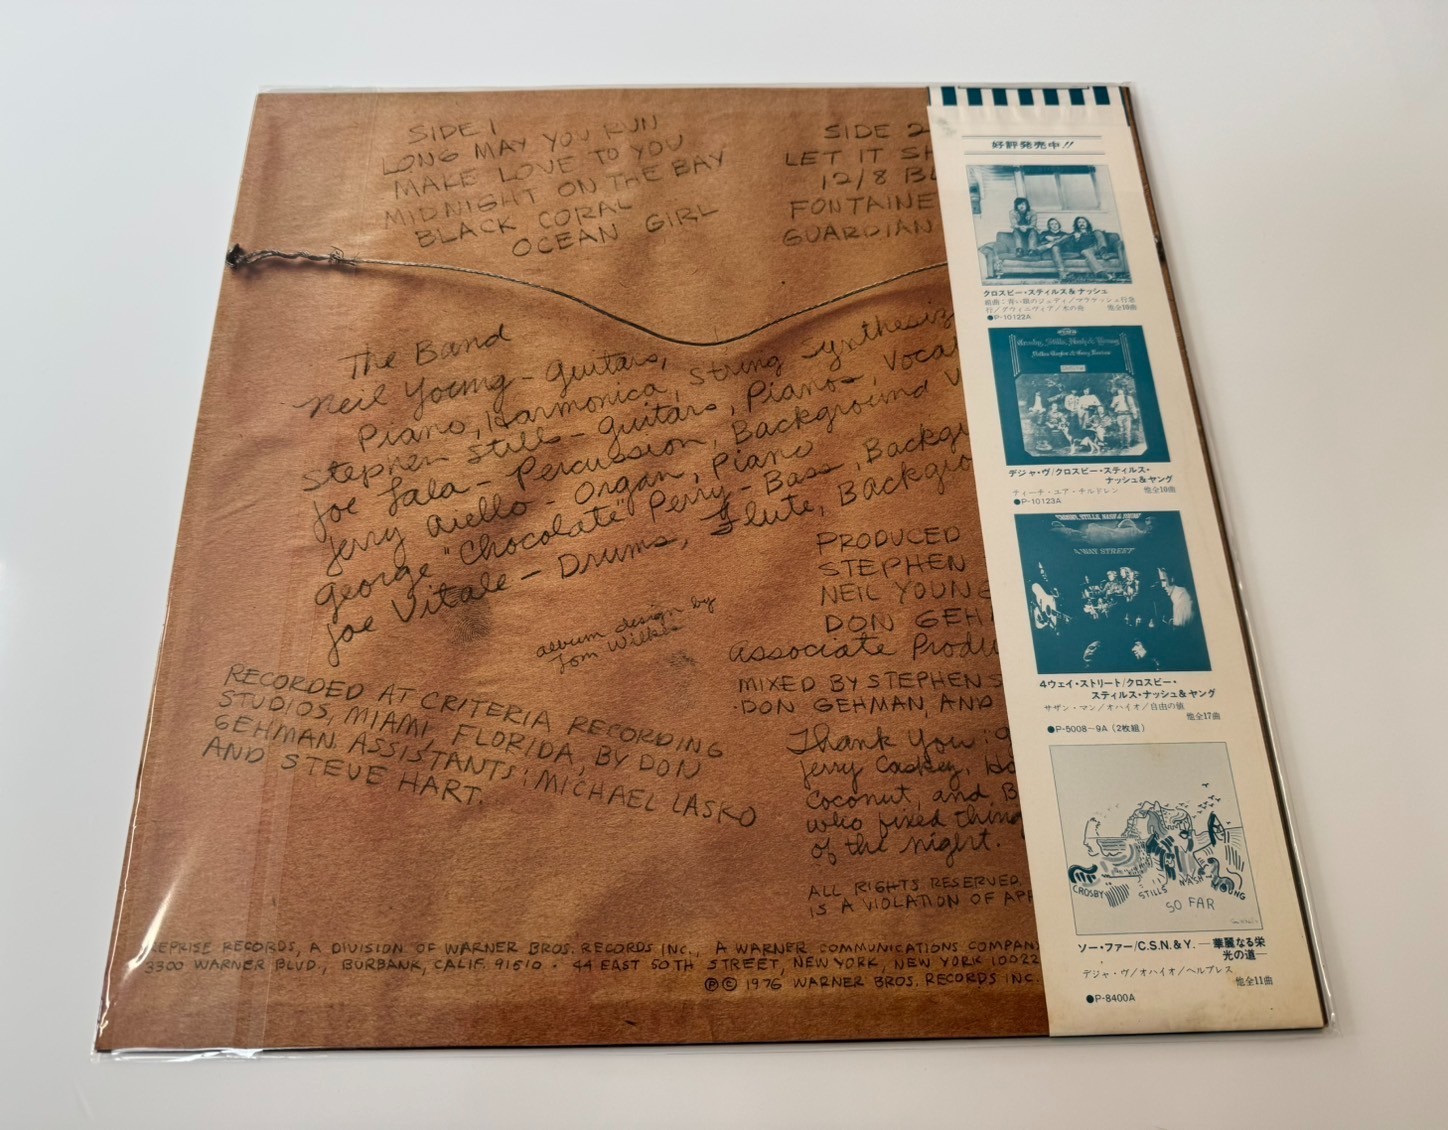 SIDE 1
LONG MAY YOU RUN
MAKE LOVE TO YOU
MIDNIGHT ON THE BAY
BLACK CORAL
OCEAN GIRL
SIDE 2
LET IT SH
12/8 BL
FONTAINE
GUARDIAN
The Band
Neil Young - Guitars,
Piano, Harmonica, String Synthesiz
Stephen Stills - Guitars, Pianos, Vocal
Joe Lala - Percussion, Background V
Jerry Aiello - Organ, Piano
George "Chocolate" Perry - Bass, Backgr
Joe Vitale - Drums, Flute, Backgro
album design by
Tom Wilkes
PRODUCED
STEPHEN
NEIL YOUNG
DON GEH
Associate Produ
MIXED BY STEPHEN S
DON GEHMAN, AND
Thank You:
Jerry Caskey, Ho
Coconut, and B
who fixed thing
of the night.
RECORDED AT CRITERIA RECORDING
STUDIOS, MIAMI, FLORIDA, BY DON
GEHMAN. ASSISTANTS: MICHAEL LASKO
AND STEVE HART.
ALL RIGHTS RESERVED.
IS A VIOLATION OF APP
REPRISE RECORDS, A DIVISION OF WARNER BROS. RECORDS INC., A WARNER COMMUNICATIONS COMPAN
3300 WARNER BLVD., BURBANK, CALIF. 91510 · 44 EAST 50TH STREET, NEW YORK, NEW YORK 10022
Ⓟ © 1976 WARNER BROS. RECORDS INC.
好評発売中!!
クロスビー・スティルス&ナッシュ
組曲:青い眼のジュディ/マラケッシュ行急
行/グウィニヴィア/木の舟 他全10曲
●P-10122A
Crosby, Stills, Nash & Young
デジャ・ヴ/クロスビー・スティルス・
ナッシュ&ヤング
ティーチ・ユア・チルドレン 他全10曲
●P-10123A
CROSBY, STILLS, NASH & YOUNG
4 WAY STREET
4ウェイ・ストリート/クロスビー・
スティルス・ナッシュ&ヤング
サザン・マン/オハイオ/自由の値
他全17曲
●P-5008~9A (2枚組)
CROSBY STILLS NASH YOUNG
SO FAR
ソー・ファー/C.S.N.&Y. —華麗なる栄
光の道—
デジャ・ヴ/オハイオ/ヘルプレス
他全11曲
●P-8400A